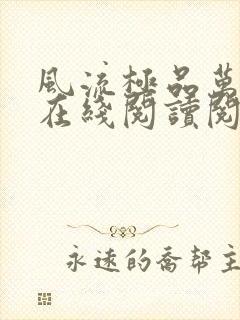 風流極品萬
在綫閱讀閱
永遠的喬幫主